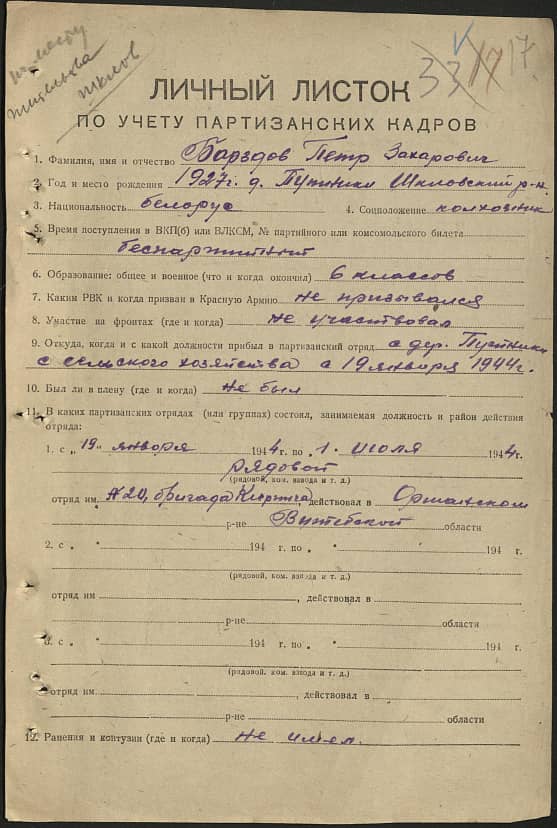 по месту
жительства
Шклов
33 17 17.
ЛИЧНЫЙ ЛИСТОК
ПО УЧЕТУ ПАРТИЗАНСКИХ КАДРОВ
1. Фамилия, имя и отчество Барздов Петр Захарович
2. Год и место рождения 1927г. д. Путники Шкловский р-н.
3. Национальность белорус 4. Соцположение колхозник
5. Время поступления в ВКП(б) или ВЛКСМ, № партийного или комсомольского билета
беспартийный
6. Образование: общее и военное (что и когда окончил) 6 классов
7. Каким РВК и когда призван в Красную Армию не призывался
8. Участие на фронтах (где и когда) не участвовал
9. Откуда, когда и с какой должности прибыл в партизанский отряд с дер. Путники
с сельского хозяйства с 19 января 1944г.
10. Был ли в плену (где и когда) не был
11. В каких партизанских отрядах (или группах) состоял, занимаемая должность и район действия
отряда:
1. с „19" января 1944 г. по „1. июля 1944г.
рядовой
(рядовой, ком. взвода и т. д.)
отряд им. №20, бригада действовал в Оршанском
р-не Витебской области
2. с „ " 194 г. по „ " 194 г.
(рядовой, ком. взвода и т. д.)
отряд им , действовал в
р-не области
3. с „ " 194 г. по „ " 194 г.
(рядовой, ком. взвода и т. д.)
отряд им. , действовал в
р-не области
12. Ранения и контузии (где и когда) не имел.